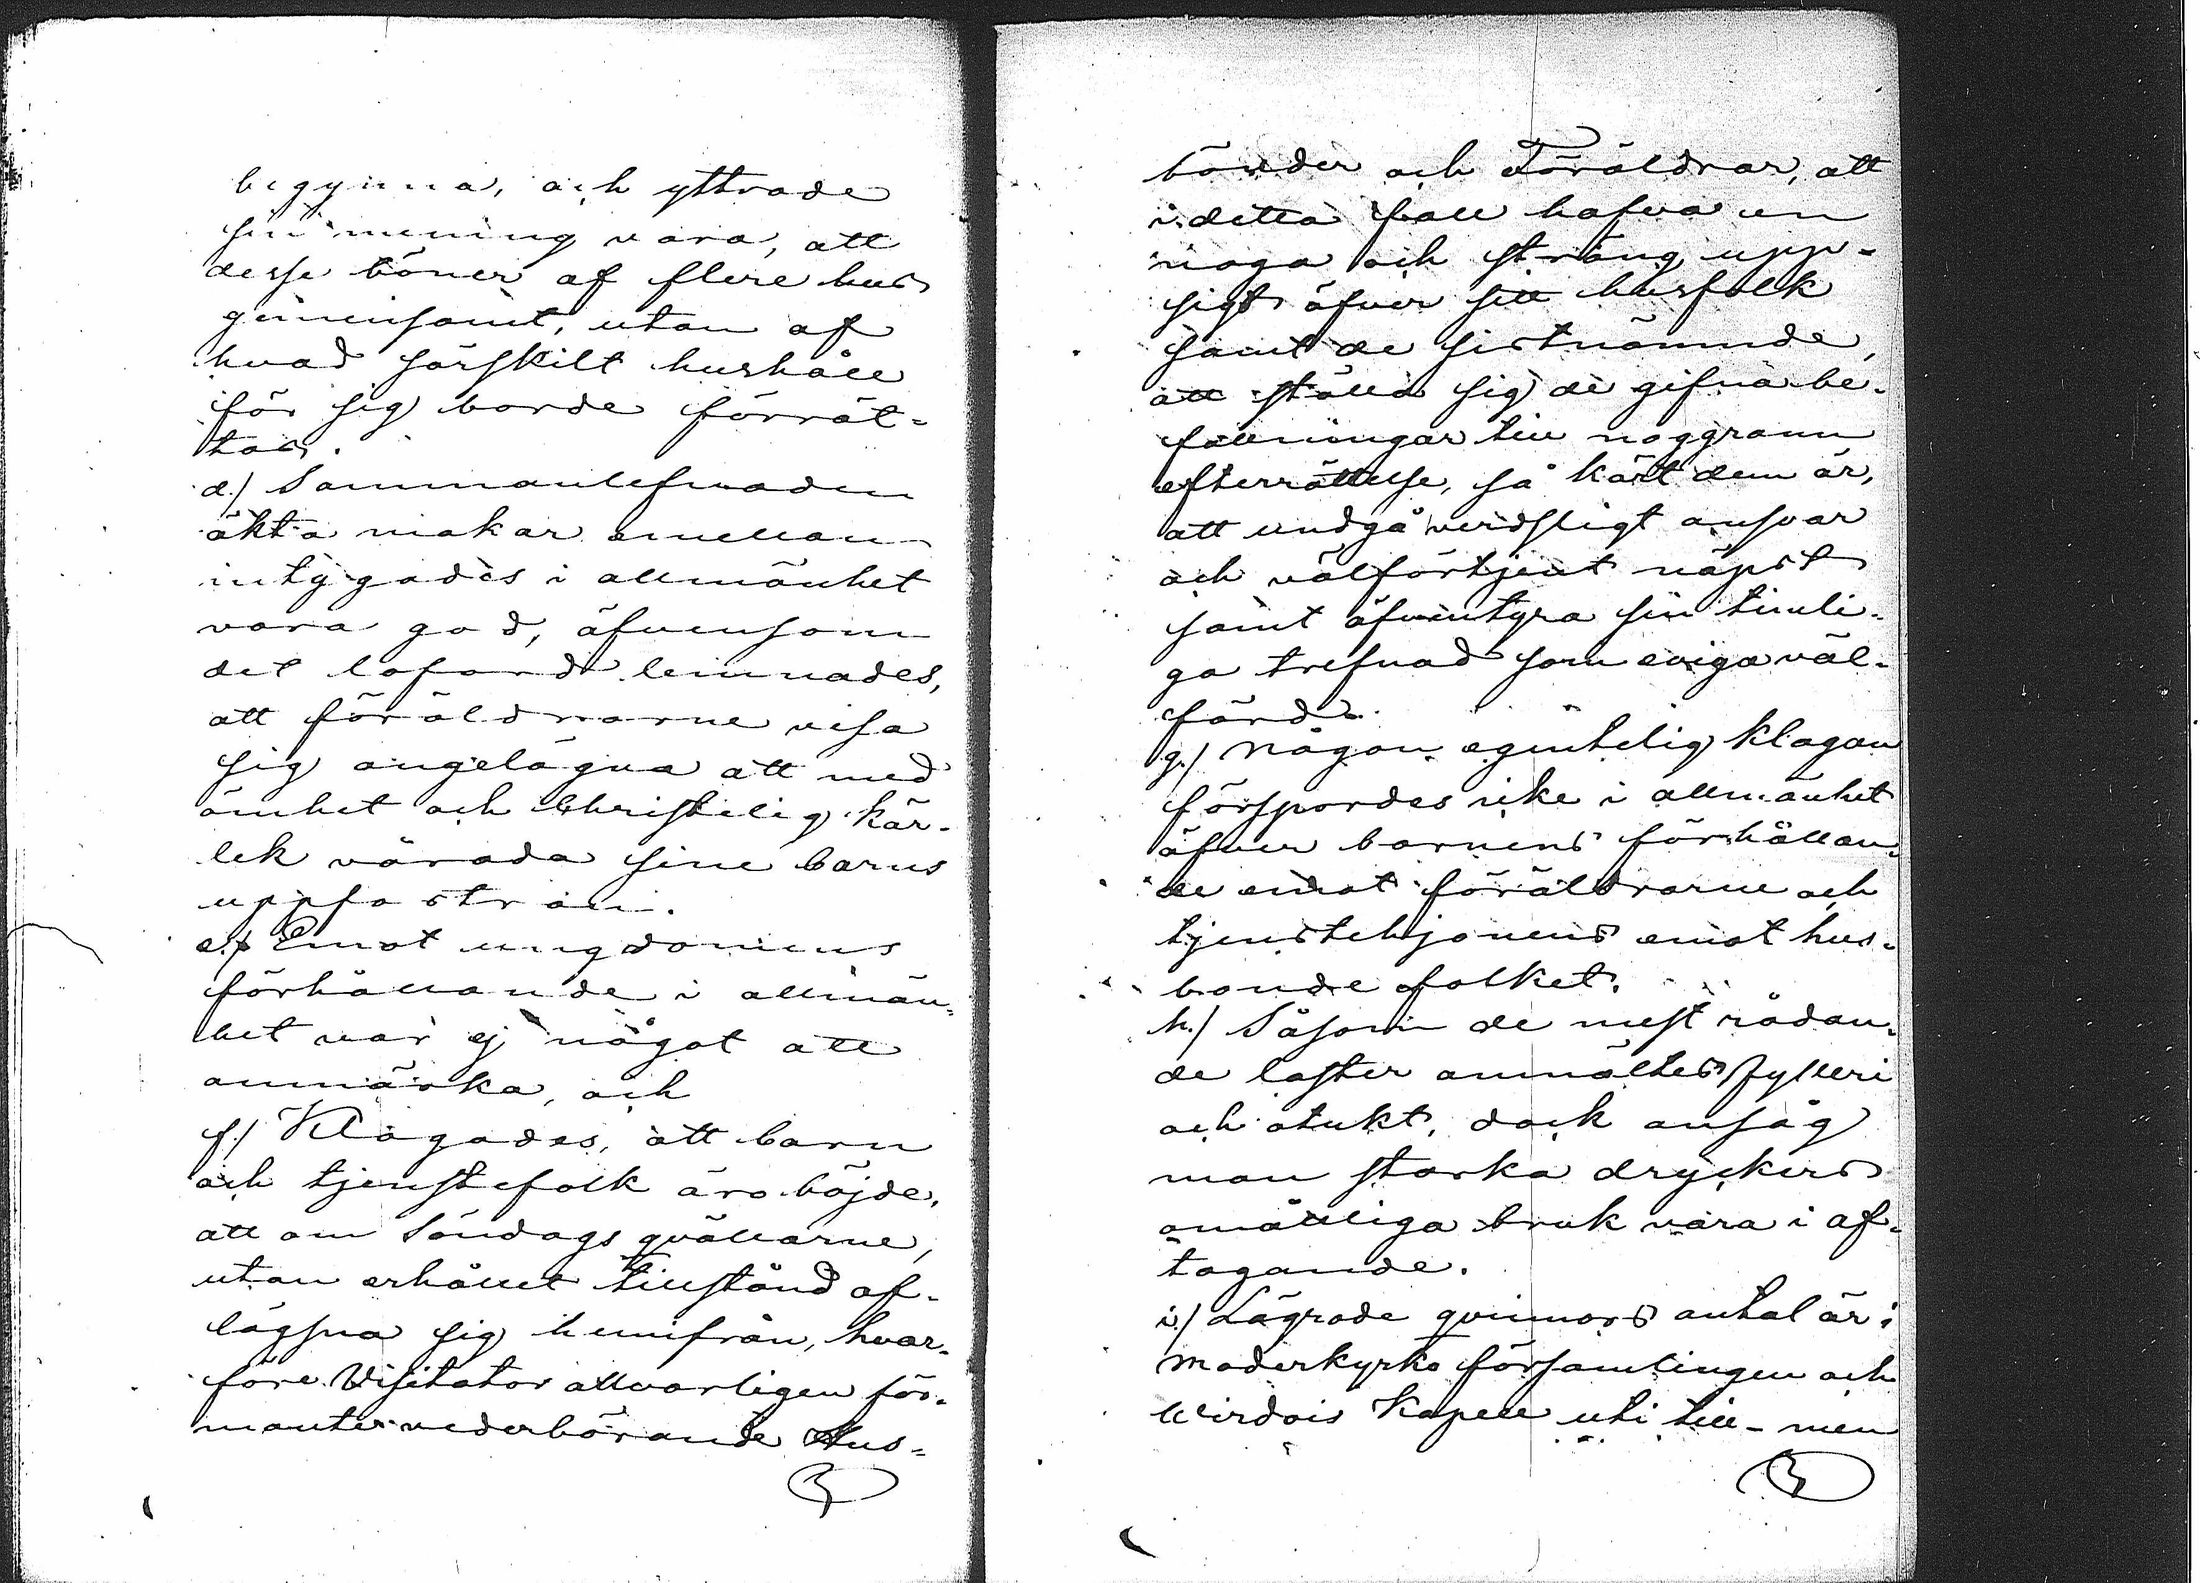 begynna, och yttrade
sin mening vara, att
desse böner af flere hus
gemensamt, utan af
hvad särskilt hushåll
för sig borde förrät-
tas.
d./ Sammanlefnaden
äkta makar emellan
intygades i allmänhet
vara god, äfvensom
det loford lemnades,
att föräldrarne visa
sig angelägna att med
ömhet och Christelig kär-
lek vårada sine barns
uppfostran.
e./ Emot ungdomens
förhållande i allmän-
het var ej något att
anmärka, och
f./ Klagades, att barn
och tjenstefolk äro böjde,
att om Söndags qvällarne,
utan erhållet tillstånd af-
lägsna sig hemifrån, hvar-
före Visitator allvarligen för-
mante vederbörande Hus-
bönder och Föräldrar, att
i detta fall hafva en
noga och sträng upp-
sigt öfver sitt husfolk
samt de sistnämnde,
att ställa sig de gifna be-
fallningar till noggrann
efterrättelse, så kärt dem är,
att undgå verdsligt ansvar
och välförtjent näpst
samt äfventyra sin timli-
ga trefnad som eviga väl-
färd.
g./ Någon egentelig klagan
förspordes icke i allmänhet
öfver barnens förhållan-
de emot föräldrarne och
tjenstehjonens emot hus-
bonde folket.
h./ Såsom de mest rådan-
de laster anmältes fylleri
och otukt, dock ansåg
man starka dryckers
omåttliga bruk vara i af-
tagande.
i./ Lägrade qvinnors antal är i
Moderkyrko församlingen och
Wirdois Kapell uti till- men